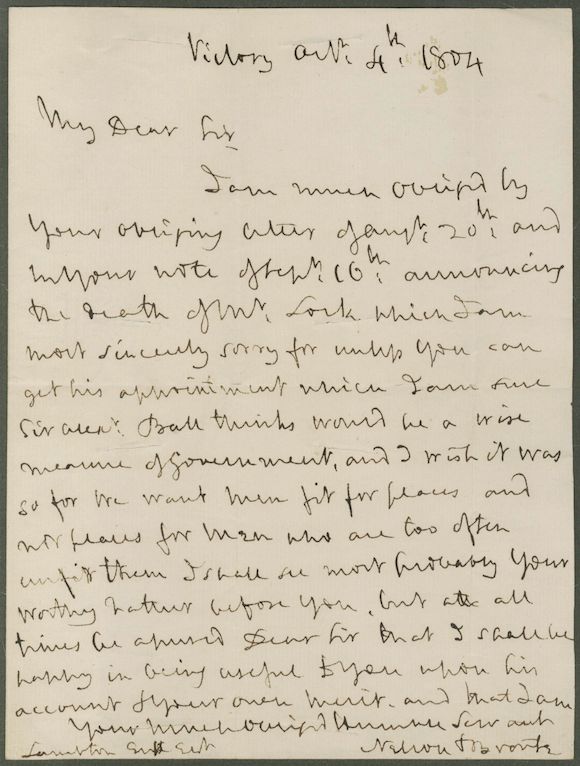 Victory Octr. 4th: 1804
My Dear Sir
I am much obliged by
your obliging letter of Augt. 20th: and
in your note of Sept: 16th: announcing
the death of Mr. Lock which I am
most sincerely sorry for unless you can
get his appointment which I am sure
Sir Alexr: Ball thinks would be a wise
measure of Government, and I wish it was
so for we want Men fit for places and
not places for Men who are too often
unfit them I shall see most probably your
worthy Father before you, but at all
times be assured Dear Sir that I shall be
happy in being useful to you upon his
account & your own merit. and that I am
Your Much obliged Humble Servant
Nelson & Bronte
Lambton Esqr